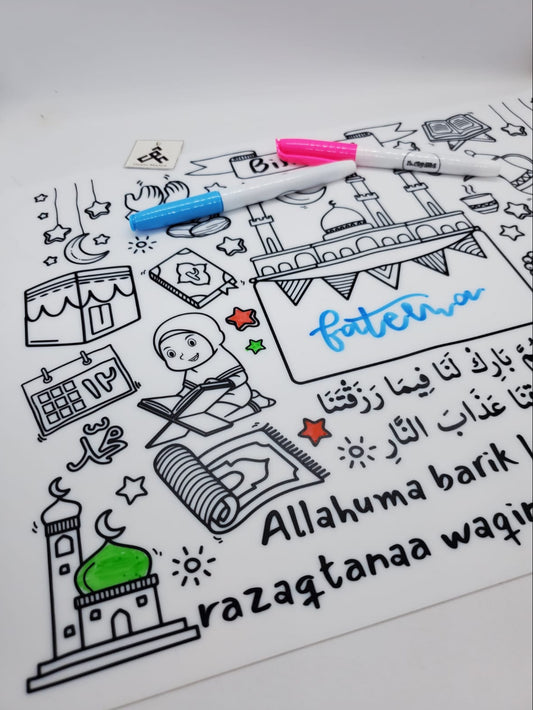 Bi
١٢
محمد
fatema
بَارِكْ لَنَا فِيمَا رَزَقْتَنَا
عَذَابَ النَّارِ
Allahuma barik
razaqtanaa waqin